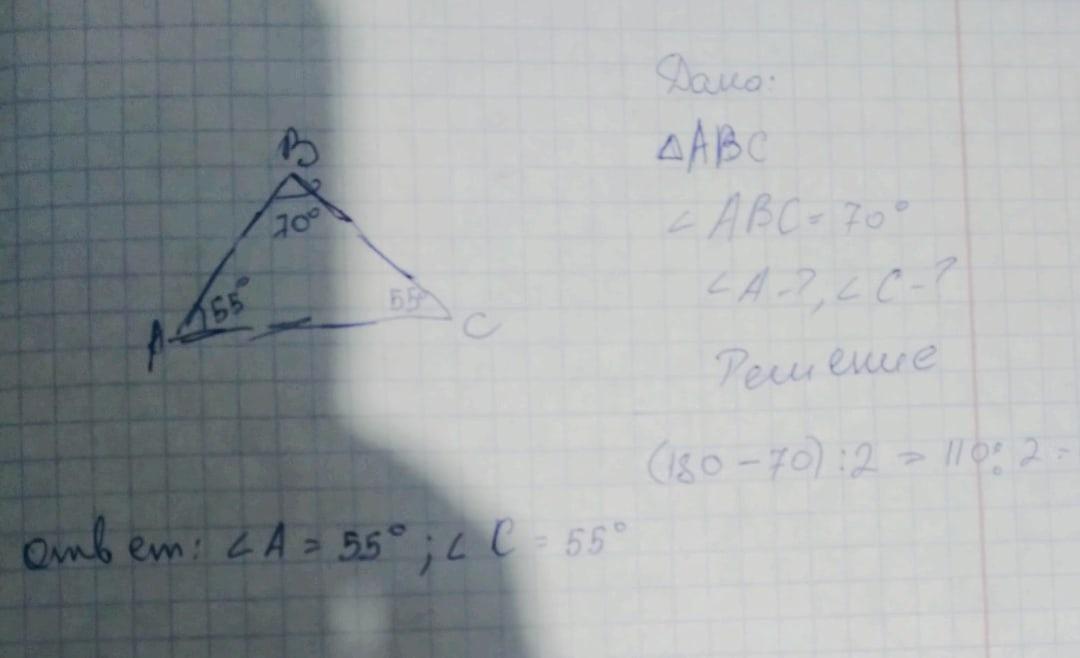 B
70°
A 55° 55° C
Дано:
△ABC
∠ABC = 70°
∠A-?, ∠C-?
Решение
(180 - 70) : 2 = 110 : 2 =
Ответ: ∠A = 55°; ∠C = 55°